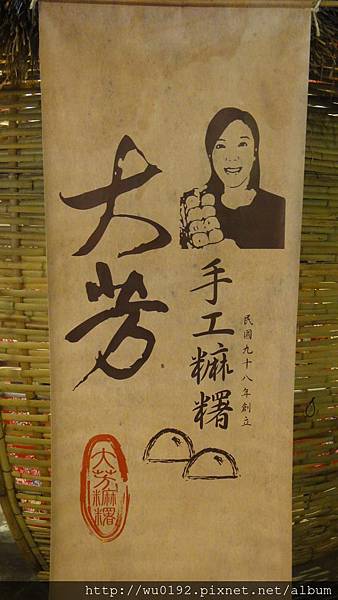 大芳
手工糍糬
民國九十八年創立
大芳糍糬
http://wu0192.pixnet.net/album